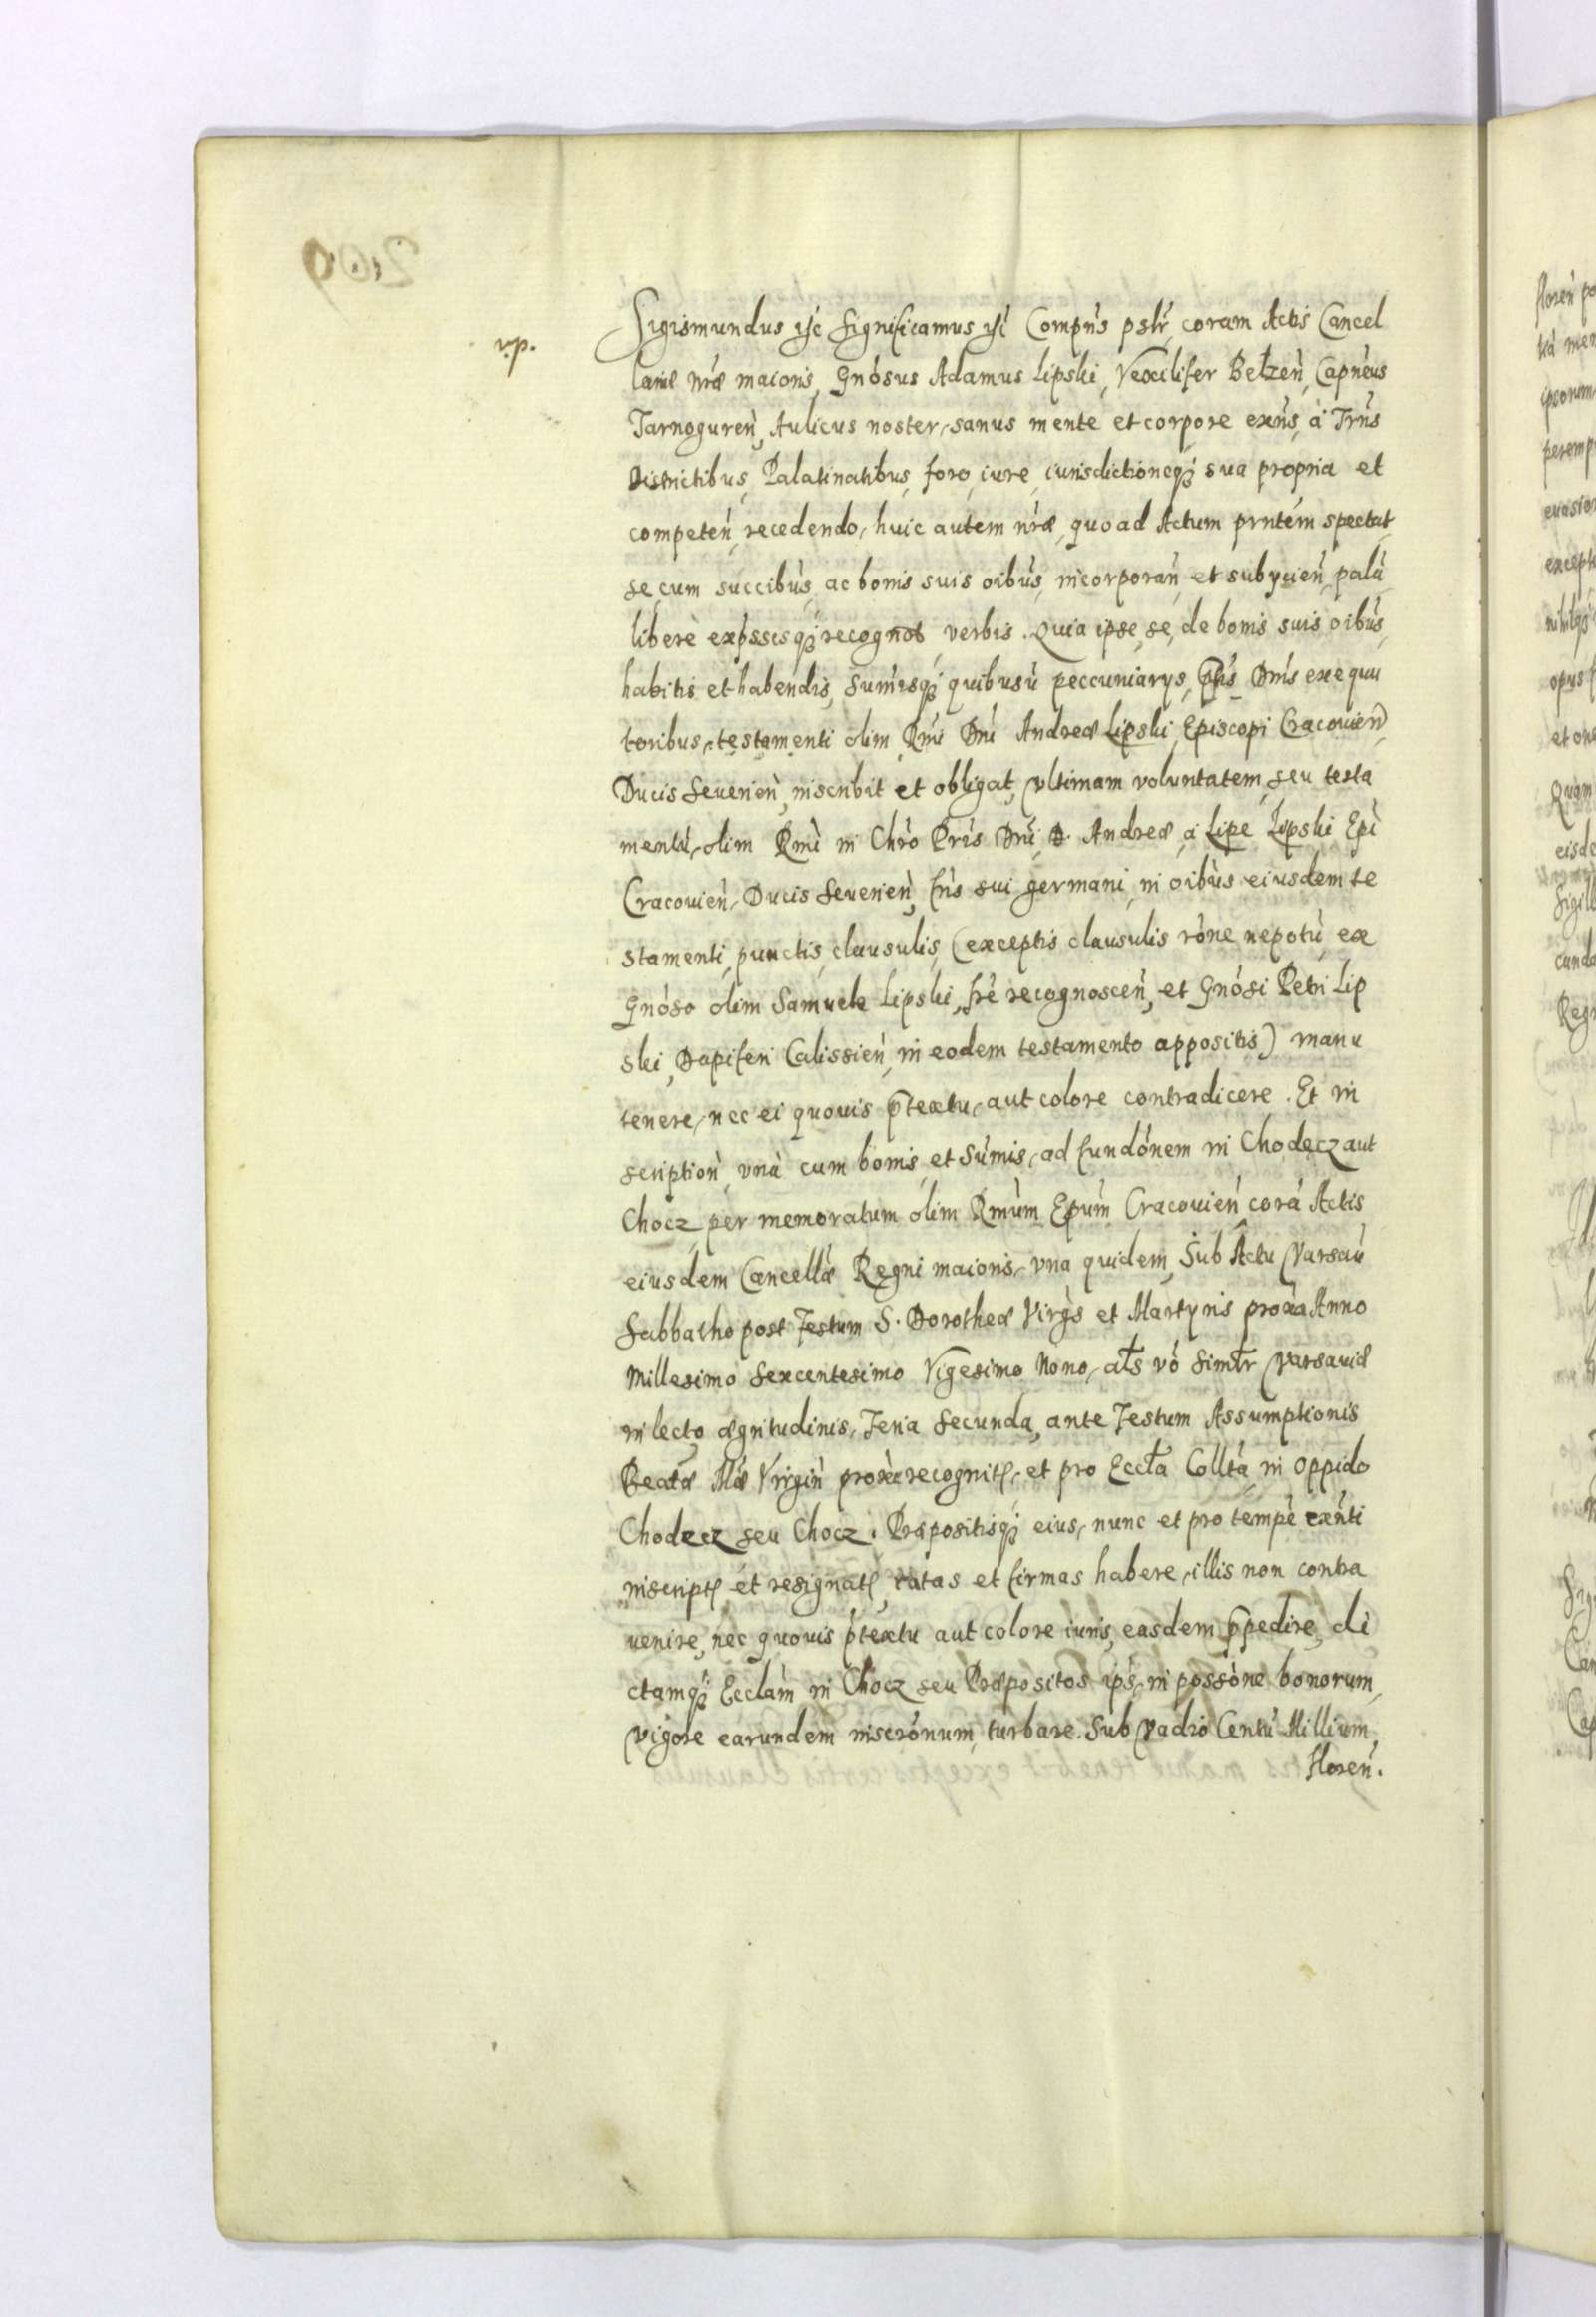 vp.
Sigismundus etc significamus etc Compns pslr, coram Actis Cancel
lariæ nræ maioris, Gnosus Adamus Lipski, Vexillifer Belzen, Capneus
Tarnoguren, Aulicus noster, sanus mente et corpore exns, à Trns
Districtibus, Palatinatibus, foro, iure, iurisdictioneq3 sua propria et
competen, recedendo, huic autem nræ, quo ad Actum prntem spectat,
se, cum succibus, ac bonis suis oibus, incorporan, et subycien, palà
liberè expssisq3 recognot verbis. Quia ipse, se, de bonis suis oibus,
habitis et habendis, sumisq3 quibusu peccuniarys, Dnis exequu
toribus, testamenti olim Rmi Dni Andreæ Lipski, Episcopi Cracouien,
Ducis Seuerien, inscribit et obligat, vltimam voluntatem, seu testa
mentù, olim Rmi in Chro Pris Dni, D. Andreæ, à Lipe Lipski Epi
Cracouien, Ducis Seuerien, fris sui germani, in oibus eiusdem te
stamenti, punctis, clausulis, (exceptis clausulis rone nepotù ex
Gnoso olim Samuele Lipski, fre recognoscen, et Gnosi Petri Lip
ski, Dapiferi Calissien, in eodem testamento appositis) manu
tenere, nec ei quouis ptextu, aut colore contradicere. Et in
scription, vnà cum bonis, et sumis, ad fundonem in Chodecz aut
Chocz per memoratum olim Rmum Epum Cracouien corà Actis
eiusdem Cancellæ Regni maioris, vna quidem, sub Actu Varsau
Sabbatho post Festum S. Dorotheæ Virgs et Martyris proxa Anno
Millesimo Sexcentesimo Vigesimo Nono, als vo simlr Varsauiæ
in lecto ægritudinis, Feria Secunda, ante Festum Assumptionis
Beatæ Mæ Virgin proxe recognit, et pro Eccla Collta in oppido
Chodecz seu Chocz. Præpositisq3 eius, nunc et pro tempe exnti
inscript, et resignat, ratas et firmas habere, illis non contra
uenire, nec quouis ptextu aut colore iuris, easdem ppedire, di
ctamq3 Ecclam in Chocz seu Præpositos ips, in possone bonorum,
vigore earundem inscronum, turbare. Sub vadio Centu Millium
floren.